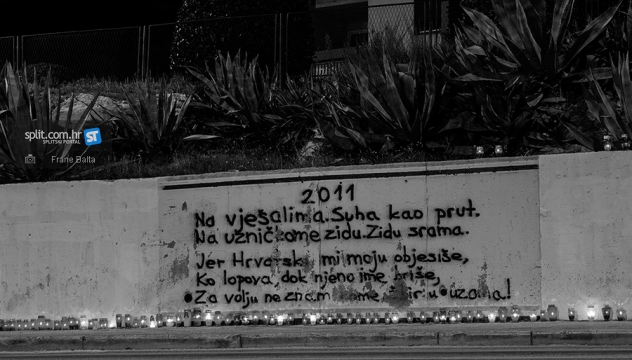 split.com.hr
SPLITSKI PORTAL
ST
Frane Balta
2011
Na vješalima. Suha kao prut.
Na uznič ome zidu. Zidu srama.
Jer Hrva sk mi moju objesiše,
Ko lopova, dok njeno ime briše,
Za volju ne znam ome, ir u uza a!